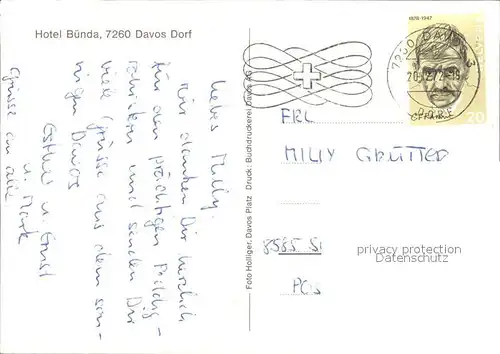 Hotel Bünda, 7260 Davos Dorf
Liebes Milly.
Wir danken Dir herzlich
für den prächtigen Poddig-
und senden Dir
viele Grüsse aus dem son-
nigen Davos
Esther u. Ernst
u. Mark
Grüsse an alle
Foto Holliger, Davos Platz Druck: Buchdruckerei Davos AG
1878-1947
7260 DAVOS
DORF
20
FRL
MILLY
8585
privacy protection
Datenschutz